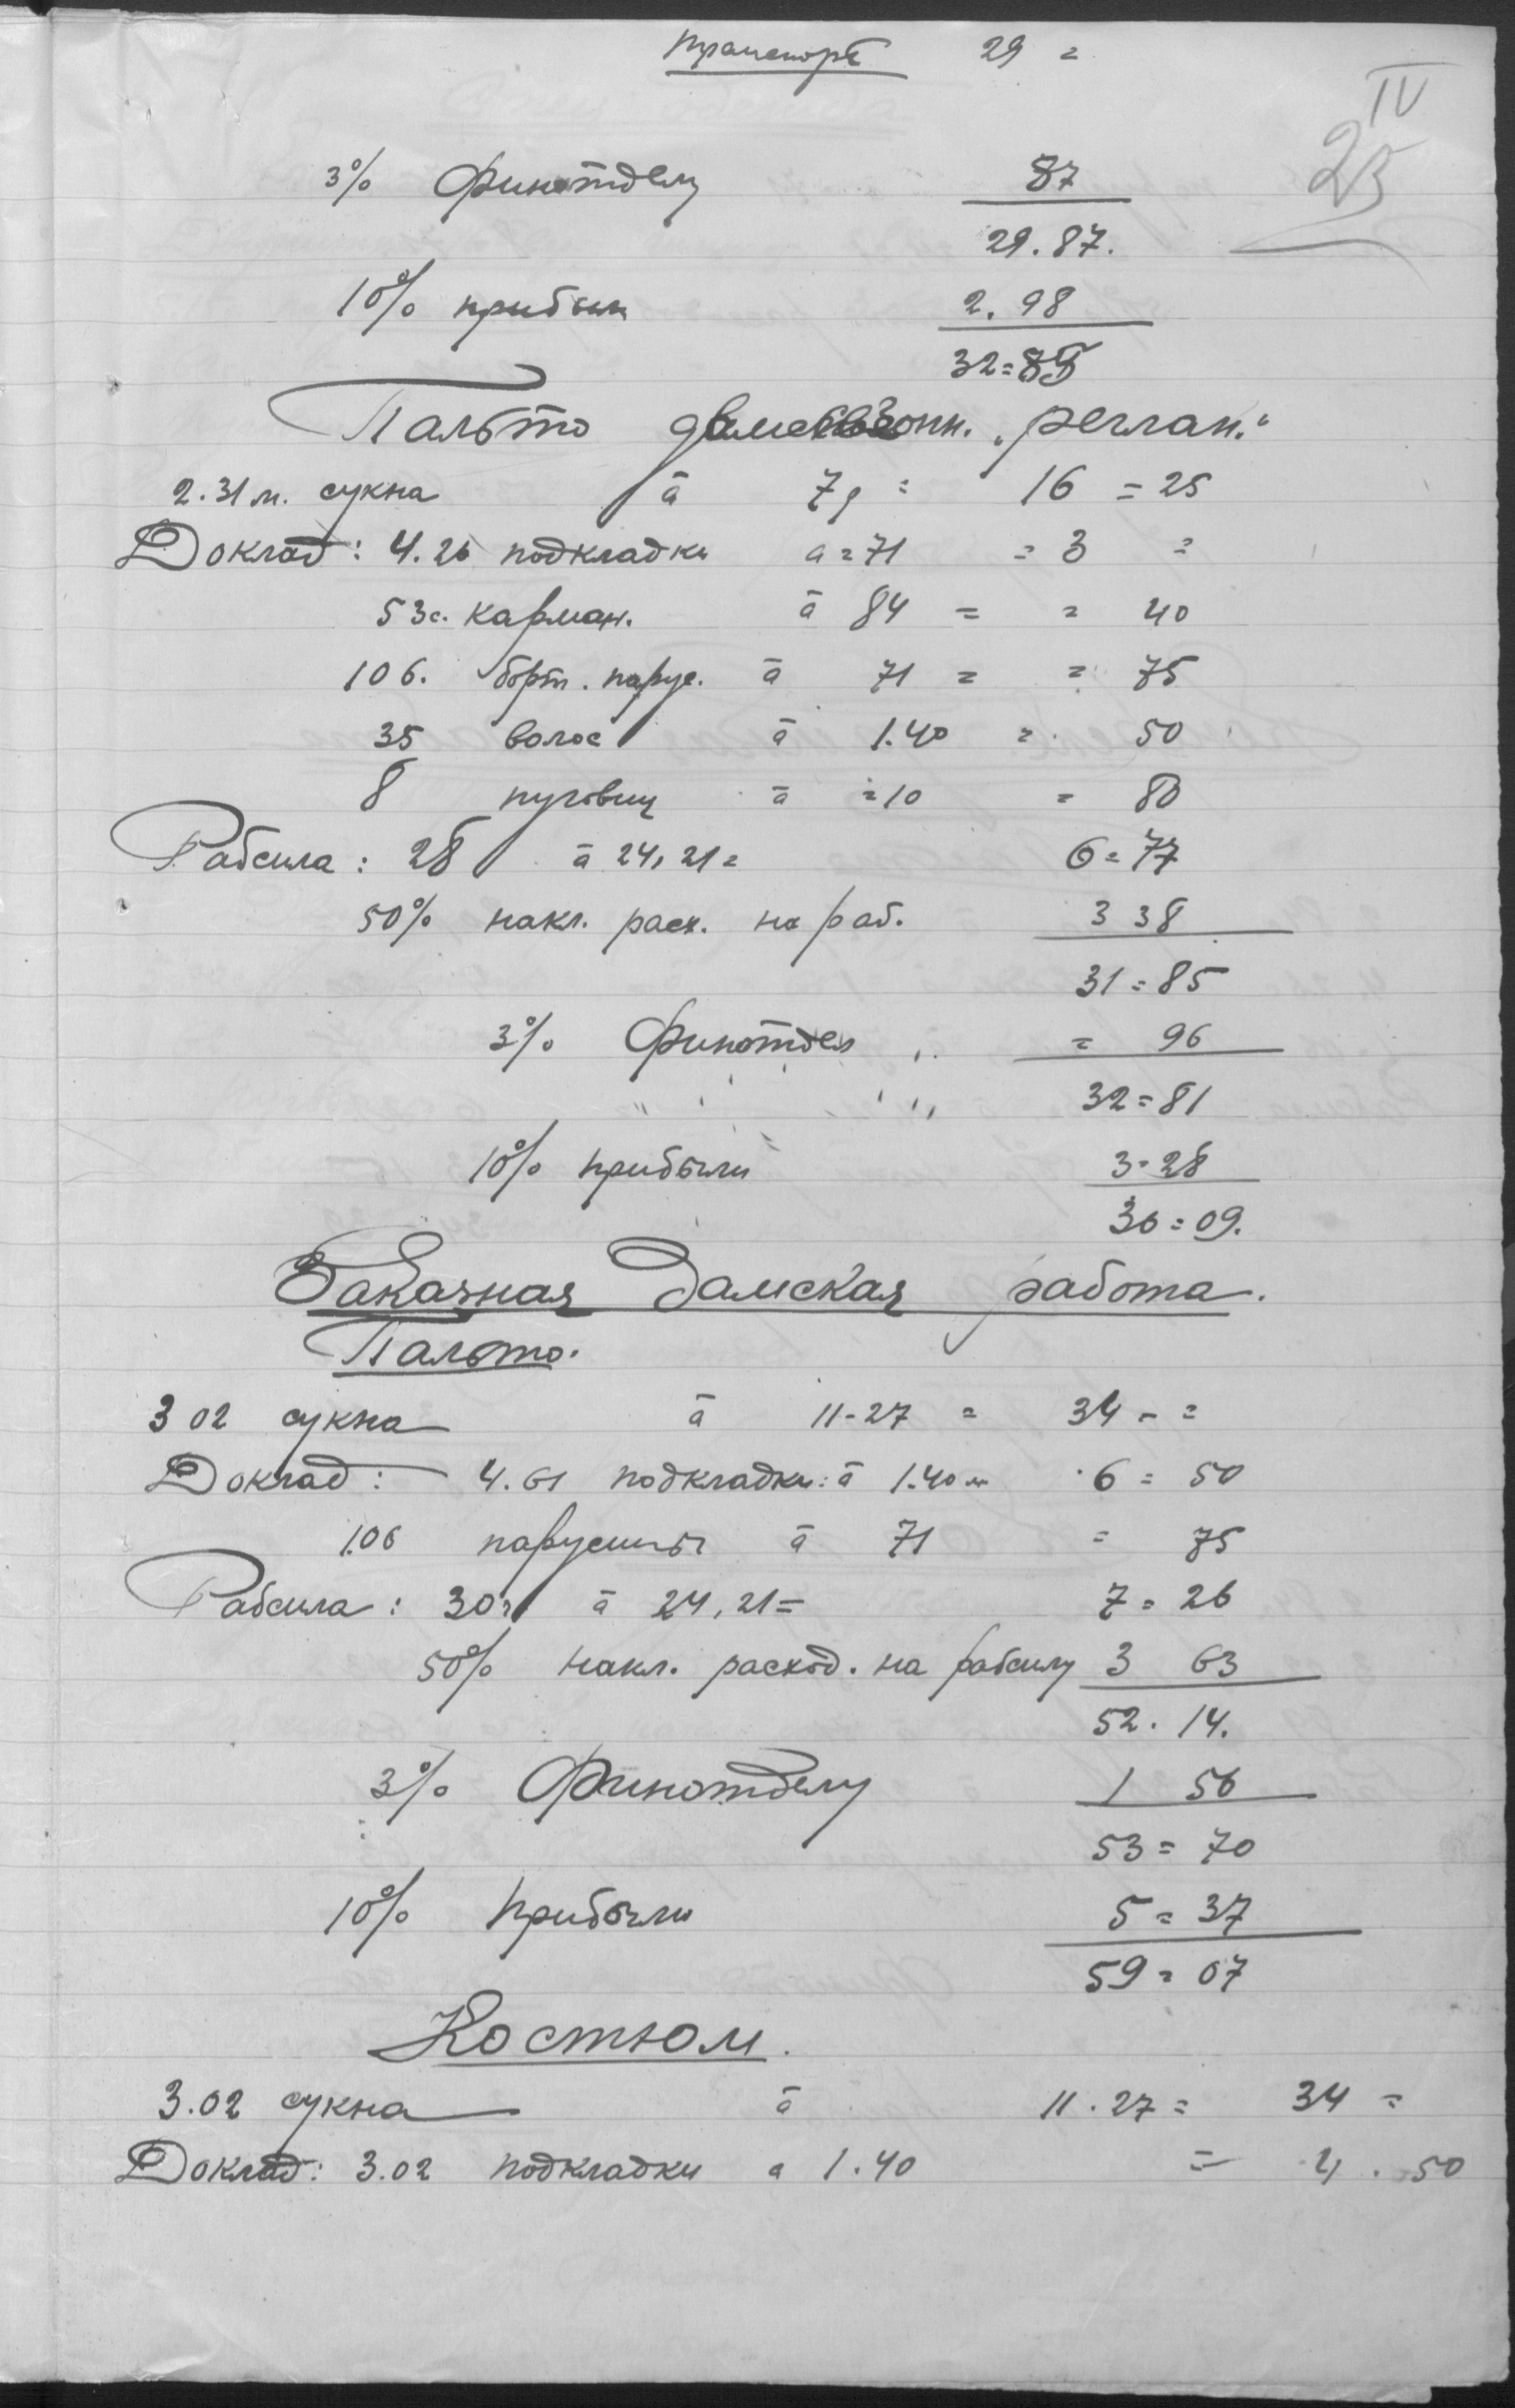 Транспорт 29 =
IV
25
3% Финотделу 87
29.87.
10% прибыли 2.98
32=85
Пальто „реглан."
2.31 м. сукна à = 16 = 25
Доклад: 4.26 подкладки а=71 = 3 =
53с. карман. à 84 = = 40
106. борт. парус. à 71 = = 75
35 волос à 1.40 = 50
8 пуговиц à =10 = 80
Рабсила: 28 à 24,21= 6=77
50% накл. расх. на раб. 3 38
31=85
3% Финотдел = 96
32=81
10% прибыли 3=28
36=09.
Заказная Дамская работа.
Пальто.
3 02 сукна à 11-27 = 34 - =
Доклад: 4.61 подкладки: à 1.40 м 6 = 50
1.06 парусины à 71 = 75
Рабсила: 30ч à 24,21= 7=26
50% накл. расход. на рабсилу 3 63
52.14.
3% Финотделу 1 56
53=70
10% прибыли 5=37
59=07
Костюм.
3.02 сукна à 11.27= 34 =
Доклад: 3.02 подкладки а 1.40 = 4.50